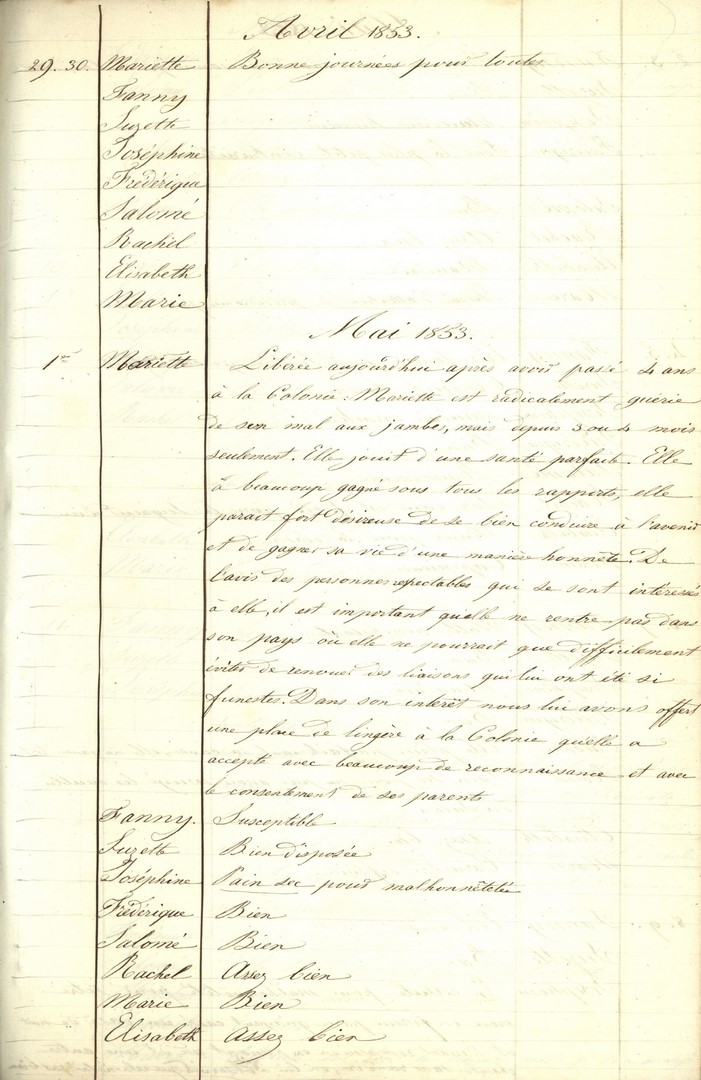 Avril 1853.
29. 30. Mariette Bonne journées pour toutes
Fanny
Suzette
Joséphine
Frédérique
Salomé
Rachel
Elisabeth
Marie
Mai 1853.
1er Mariette Libérée aujourd'hui après avoir passé 4 ans
à la Colonie. Mariette est radicalement guérie
de son mal aux jambes, mais depuis 3 ou 4 mois
seulement. Elle jouit d'une santé parfaite. Elle
à beaucoup gagné sous tous les rapports, elle
parait fort désireuse de se bien conduire à l'avenir
et de gagner sa vie d'une manière honnête. De
l'avis des personnes respectables qui se sont intéressés
à elle, il est important qu'elle ne rentre pas dans
son pays où elle ne pourrait que difficilement
éviter de renouer des liaisons qui lui ont été si
funestes. Dans son intérêt nous lui avons offert
une place de lingère à la Colonie qu'elle a
accepté avec beaucoup de reconnaissance et avec
le consentement de ses parents
Fanny. Susceptible
Suzette Bien disposée
Joséphine Pain sec pour malhonnêteté
Frédérique Bien
Salomé Bien
Rachel Assez bien
Marie Bien
Elisabeth Assez bien